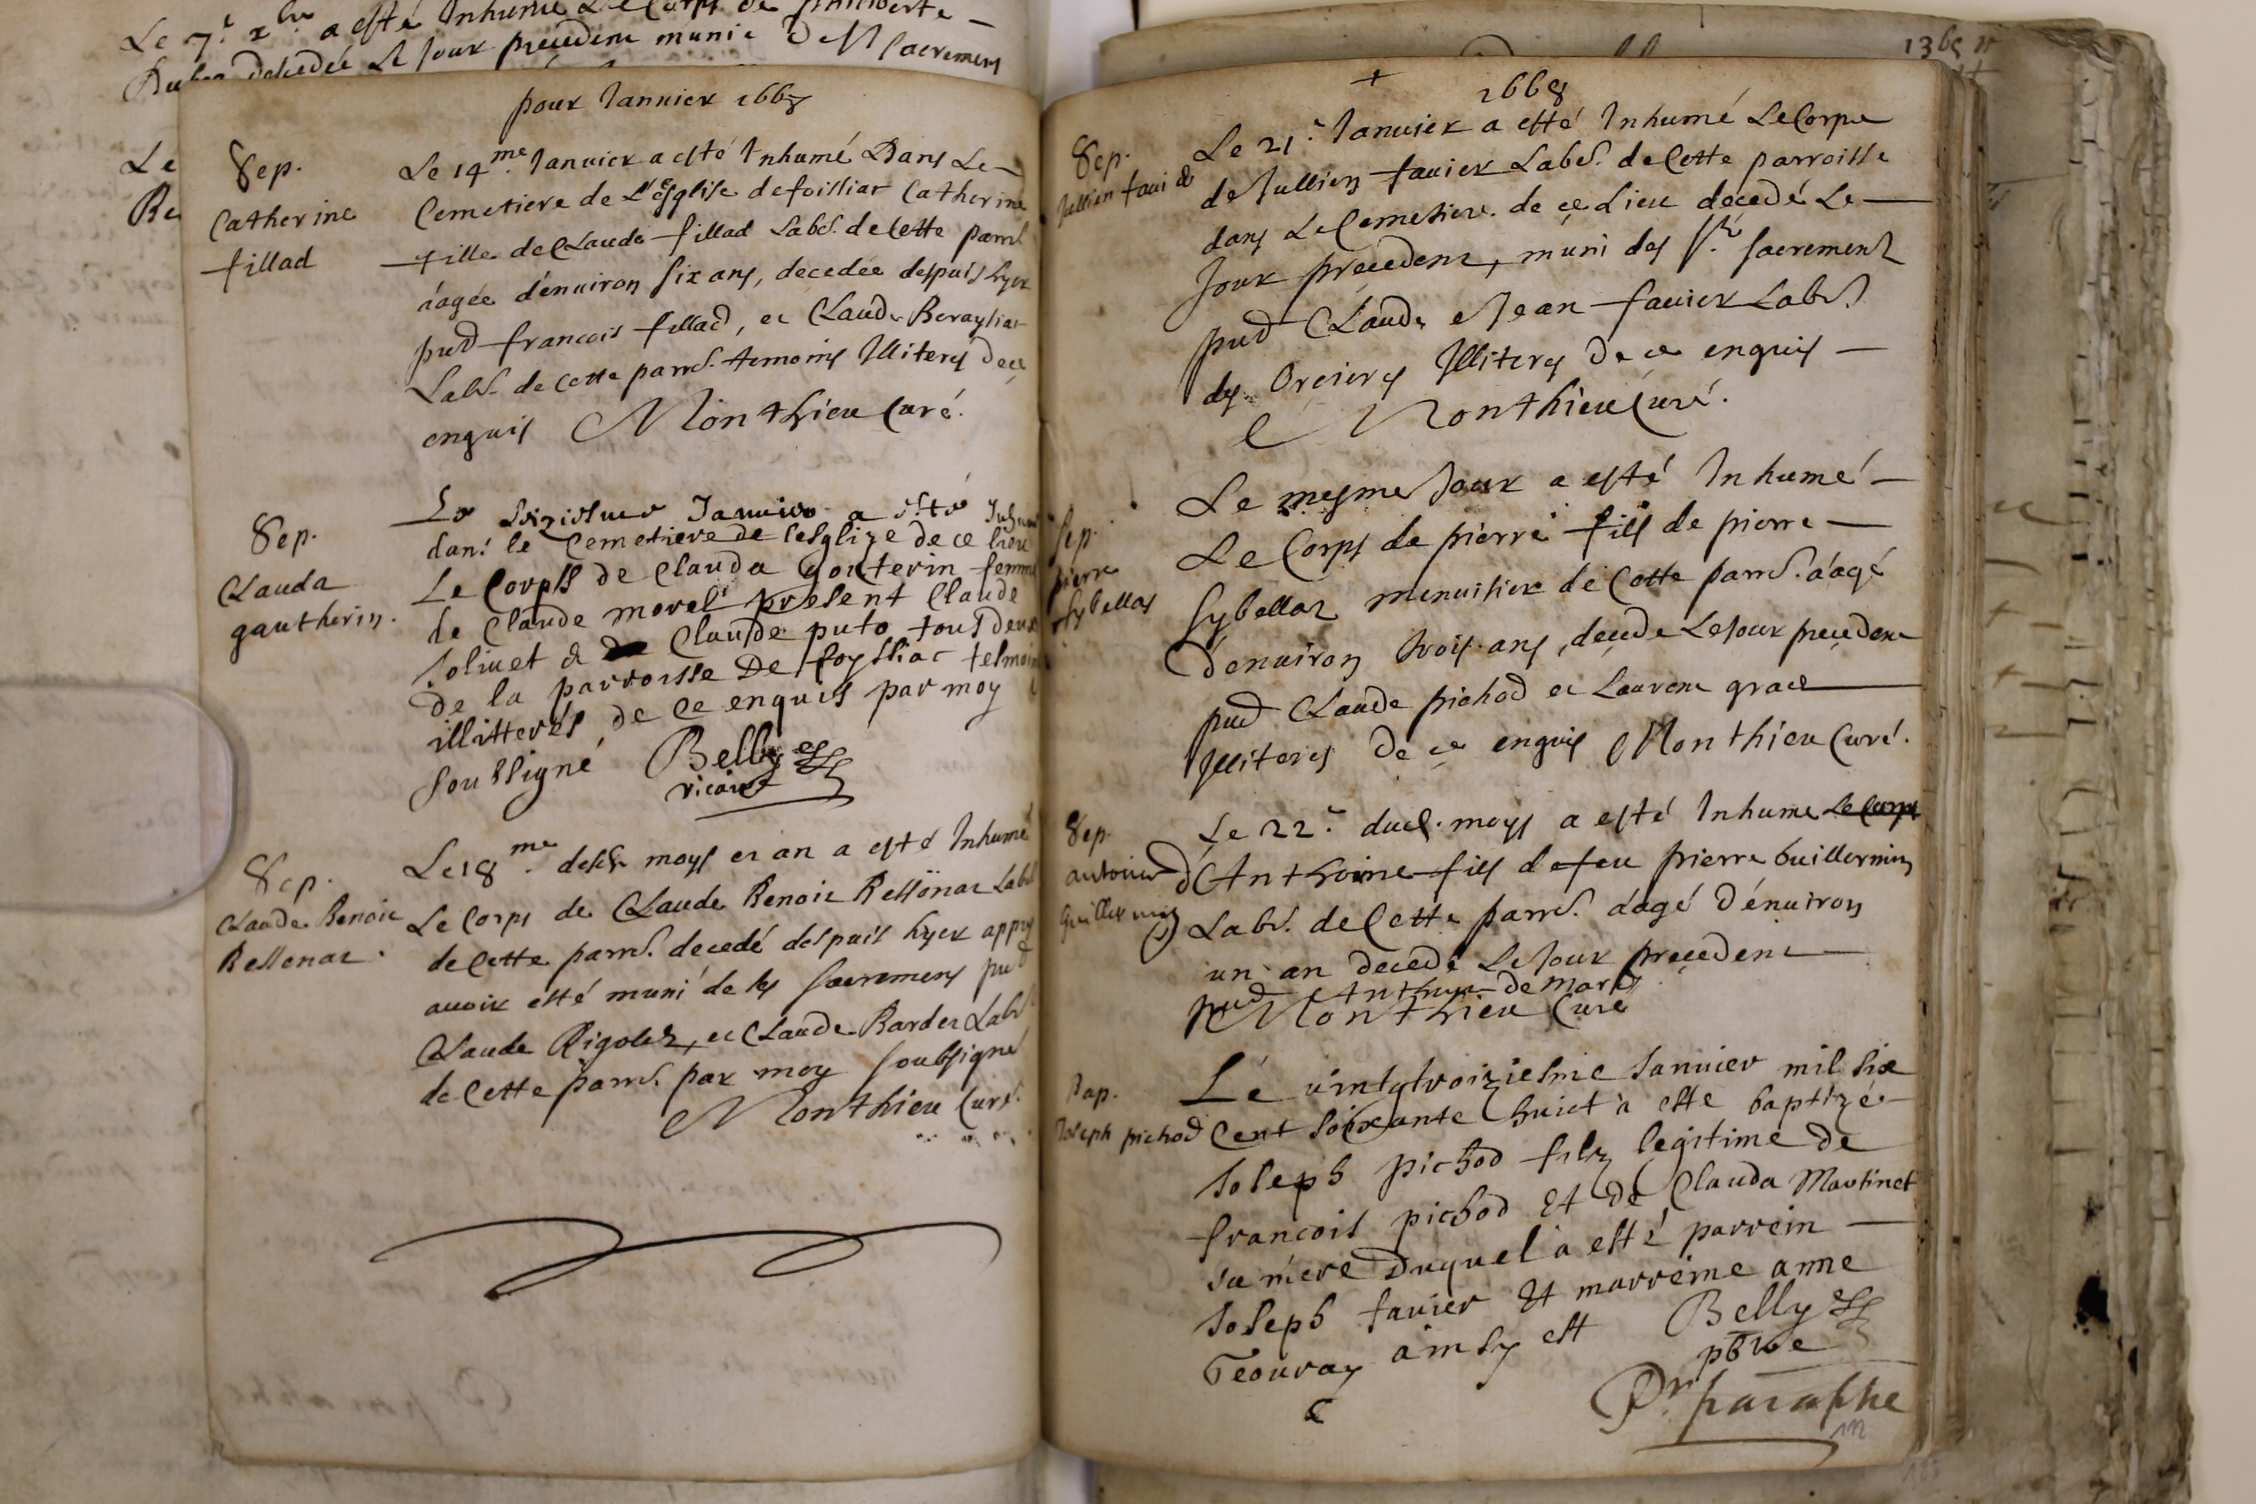 Le 7.e xbre a esté Inhumé Le Corps de
decedée Le Jour precedent munie des sacremens
Le
Be
pour Januier 1668
Sep.
Catherine
fillad
Le 14.me Januier a esté Inhumé Dans Le
Cemetiere de L'esglise de foissiat Catherine
fille de Claude fillad Labr. de Cette parr.
áagée d'enuiron six ans, decedée despuis hyer
pnt francois fillad, et Claude
Labr. de Cette parr. temoins Illiterés de ce
enquis Monthieu Curé.
Sep.
Clauda
gautherin.
Le seiziesme Januier a esté Inhumé
dans le Cemetiere de l'esglize de ce lieu
Le Corps de Clauda gouterin femme
de Claude morel present Claude
soliuet & Claude puto tous deux
de la parroisse De foyssiac tesmoins
illitterés de ce enquis par moy
soussigné Belly
vicaire
Sep.
Claude Benoit
Ressonat.
Le 18.me desdt moys et an a esté Inhumé
Le Corps de Claude Benoit Ressonat Labr
de Cette parr. decedé despuis hyer apprés
auoir esté muni de ses sacremens pnt
Claude Rigolet, et Claude Bardet Labr
de Cette parr. par moy soubsigné
Monthieu Curé.
1365
1668
Sep.
Jullien fauier
Le 21.e Januier a esté Inhumé Le Corps
de Jullien fauier Labr. de Cette parroisse
dans Le Cemetiere de ce Lieu decedé Le
Jour precedent, muni des Sts sacrement
pnt Claude & Jean fauier Labrs
des Orciers Illiterés de ce enquis
Monthieu Curé.
Sep.
pierre
sybellas
Le mesme Jour a esté Inhumé
Le Corps de pierre fils de pierre
sybellas menuisier de Cette parr. áagé
d'enuiron trois ans, decedé Le Jour precedent
pnt Claude pichod et Laurent grace
Illiterés de ce enquis Monthieu Curé.
Sep.
antoine
Guillermin
Le 22.e dud. moys a esté Inhumé Le Corps
d'Anthoine fils de feu pierre Guillermin
Labr. de Cette parr. áagé d'énuiron
un an decedé Le Jour precedent
pnt Anthoine de mares
Monthieu Curé
Bap.
Joseph pichod
Le vintgtroiziesme Januier mil six
Cent soixante huict a esté baptizé
Joseph pichod filz legitime de
francois pichod Et de Clauda Martinet
sa mere Duquel a esté parrein
Joseph fauier Et marreine anne
Teouray ainsy est Belly
pbre
Pr paraphe